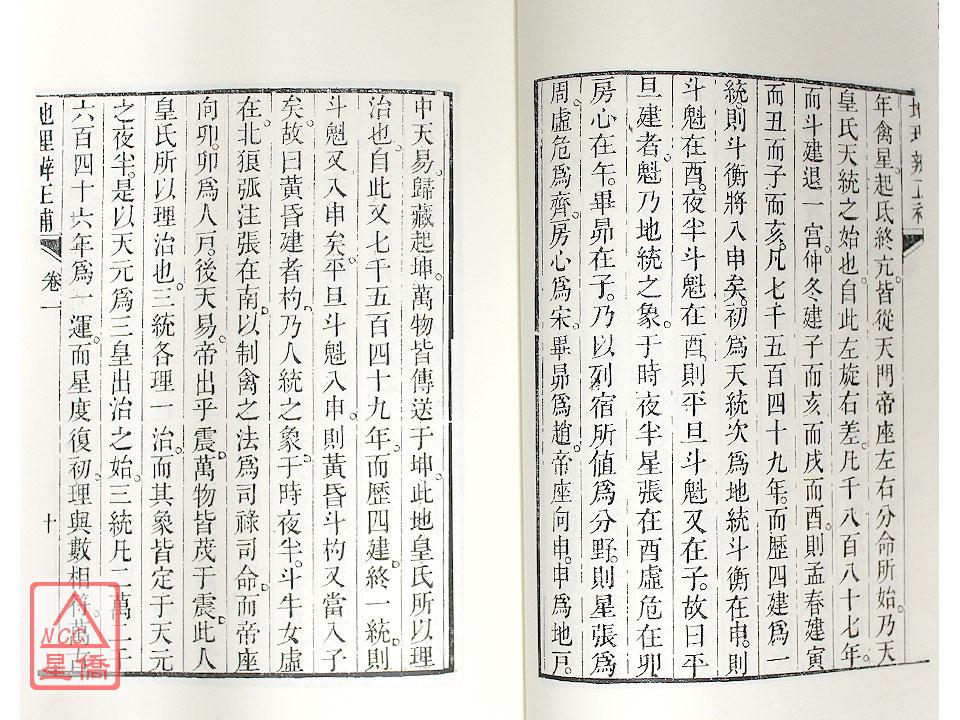 年禽星起氐終亢皆從天門帝座左右分命所始乃天
皇氏天統之始也自此左旋右差凡千八百八十七年
而斗建退一宮仲冬建子而亥而戌而酉則孟春建寅
而丑而子而亥凡七千五百四十九年而歷四建爲一
統則斗衡將入申矣初爲天統次爲地統斗衡在申則
斗魁在酉夜半斗魁在酉則平旦斗魁又在子故曰平
旦建者魁乃地統之象于時夜半星張在酉虛危在卯
房心在午畢昴在子乃以列宿所值爲分野則星張爲
周虛危爲齊房心爲宋畢昴爲趙帝座向申申爲地戶
中天易歸藏起坤萬物皆傳送于坤此地皇氏所以理
治也自此又七千五百四十九年而歷四建終一統則
斗魁又入申矣平旦斗魁入申則黃昏斗杓又當入子
矣故曰黃昏建者杓乃人統之象于時夜半斗牛女虛
在北狼弧注張在南以制禽之法爲司祿司命而帝座
向卯卯爲人戶後天易帝出乎震萬物皆茂于震此人
皇氏所以理治也三統各理一治而其象皆定于天元
之夜半是以天元爲三皇出治之始三統凡二萬二千
六百四十六年爲一運而星度復初理與數相符萬古
地理辨正補
卷一
十
NCC
星僑